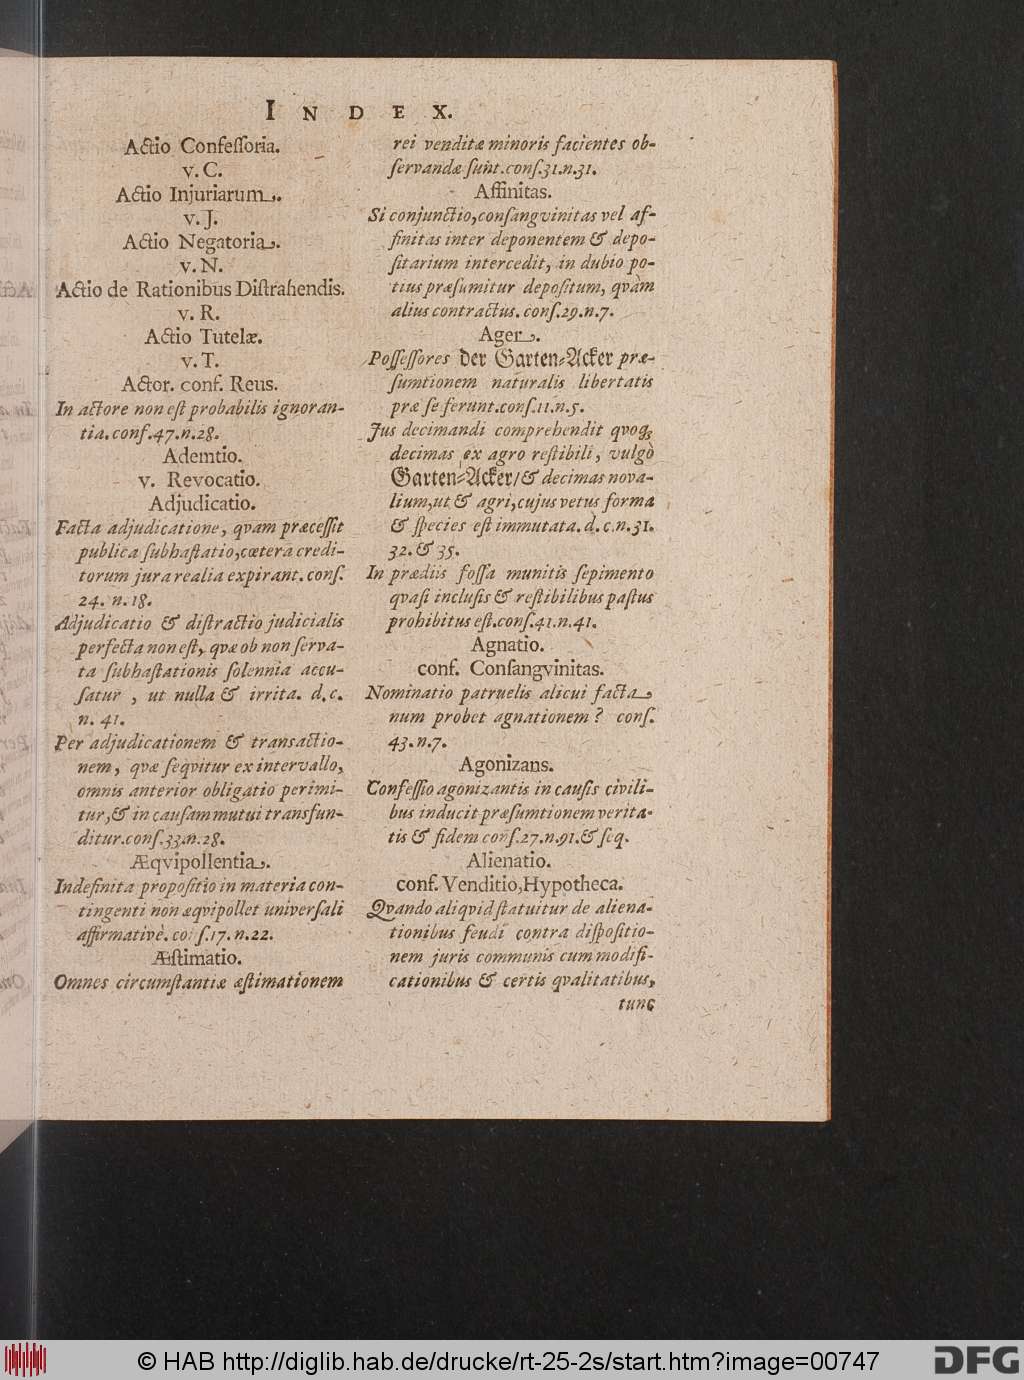 INDEX.
Actio Confeſſoria.
v. C.
Actio Injuriarum.
v. J.
Actio Negatoria.
v. N.
Actio de Rationibus Diſtrahendis.
v. R.
Actio Tutelæ.
v. T.
Actor. conf. Reus.
In actore non eſt probabilis ignoran-
tia. conſ. 47. n. 28.
Ademtio.
v. Revocatio.
Adjudicatio.
Facta adjudicatione, qvam præceſſit
publica ſubhaſtatio, cœtera credi-
torum jura realia expirant. conſ.
24. n. 18.
Adjudicatio & diſtractio judicialis
perfecta non eſt, qvæ ob non ſerva-
ta ſubhaſtationis ſolennia accu-
ſatur, ut nulla & irrita. d. c.
n. 41.
Per adjudicationem & transactio-
nem, qvæ ſeqvitur ex intervallo,
omnis anterior obligatio perimi-
tur, & in cauſam mutui transfun-
ditur. conſ. 33. n. 28.
Æqvipollentia.
Indefinita propoſitio in materia con-
tingenti non æqvipollet univerſali
affirmativè. conſ. 17. n. 22.
Æſtimatio.
Omnes circumſtantiæ æſtimationem
rei venditæ minoris facientes ob-
ſervandæ ſunt. conſ. 31. n. 31.
Affinitas.
Si conjunctio, conſangvinitas vel af-
finitas inter deponentem & depo-
ſitarium intercedit, in dubio po-
tius præſumitur depoſitum, qvàm
alius contractus. conſ. 29. n. 7.
Ager.
Poſſeſſores der Garten-Acker præ-
ſumtionem naturalis libertatis
præ ſe ferunt. conſ. 11. n. 5.
Jus decimandi comprehendit qvoqꝫ
decimas ex agro reſtibili, vulgò
Garten-Acker/ & decimas nova-
lium, ut & agri, cujus vetus forma
& ſpecies eſt immutata. d. c. n. 31.
32. & 35.
In prædiis foſſa munitis ſepimento
qvaſi incluſis & reſtibilibus paſtus
prohibitus eſt. conſ. 41. n. 41.
Agnatio.
conf. Conſangvinitas.
Nominatio patruelis alicui facta
num probet agnationem? conſ.
43. n. 7.
Agonizans.
Confeſſio agonizantis in cauſis civili-
bus inducit præſumtionem verita-
tis & fidem conſ. 27. n. 91. & ſeq.
Alienatio.
conf. Venditio, Hypotheca.
Qvando aliqvid ſtatuitur de aliena-
tionibus feudi contra diſpoſitio-
nem juris communis cum modifi-
cationibus & certis qvalitatibus,
tunc
© HAB http://diglib.hab.de/drucke/rt-25-2s/start.htm?image=00747
DFG